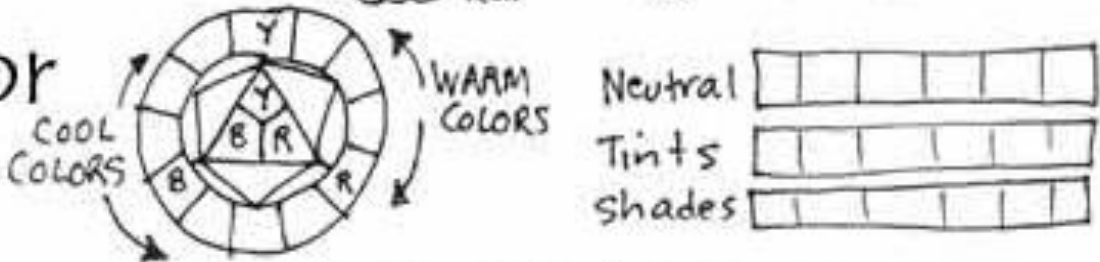 or
COOL
COLORS
Y
Y
B R
B
R
WARM
COLORS
Neutral
Tints
Shades